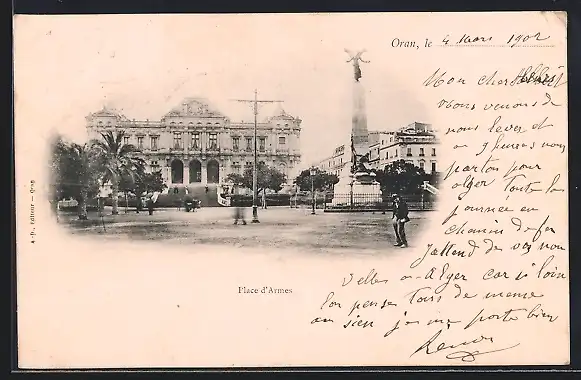 Oran, le 4 Mars 1902
Mon cher
nous venons de
nous lever et
a 9 heures nous
partons pour
alger Toute la
journée en
chemin de fer
J'attend de vos nou
velles a Alger car si loin
l'on pense Tous de meme
au sien je me porte bien
Place d'Armes
A.P., Editeur - Oran